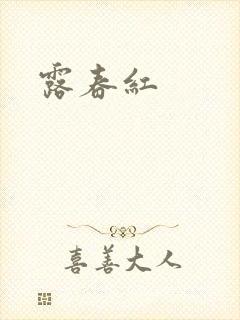 露春紅
喜善大人